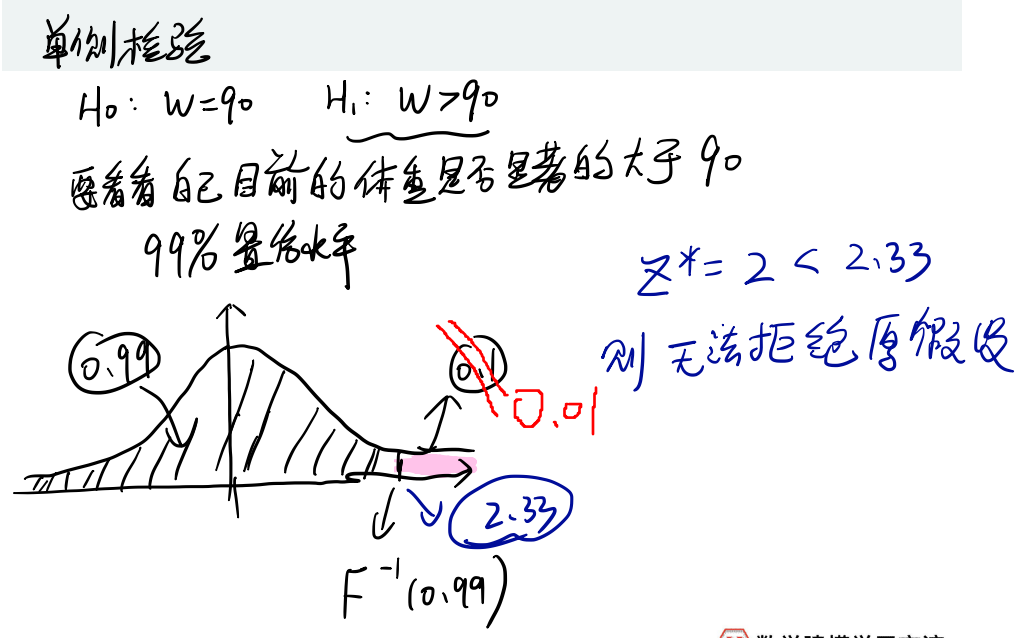 单侧检验
H₀: W=90 H₁: W>90
要看看自己目前的体重是否显著的大于90
99%置信水平
Z*=2<2.33
则无法拒绝原假设
0.99
0.1
0.01
2.33
F⁻¹(0.99)